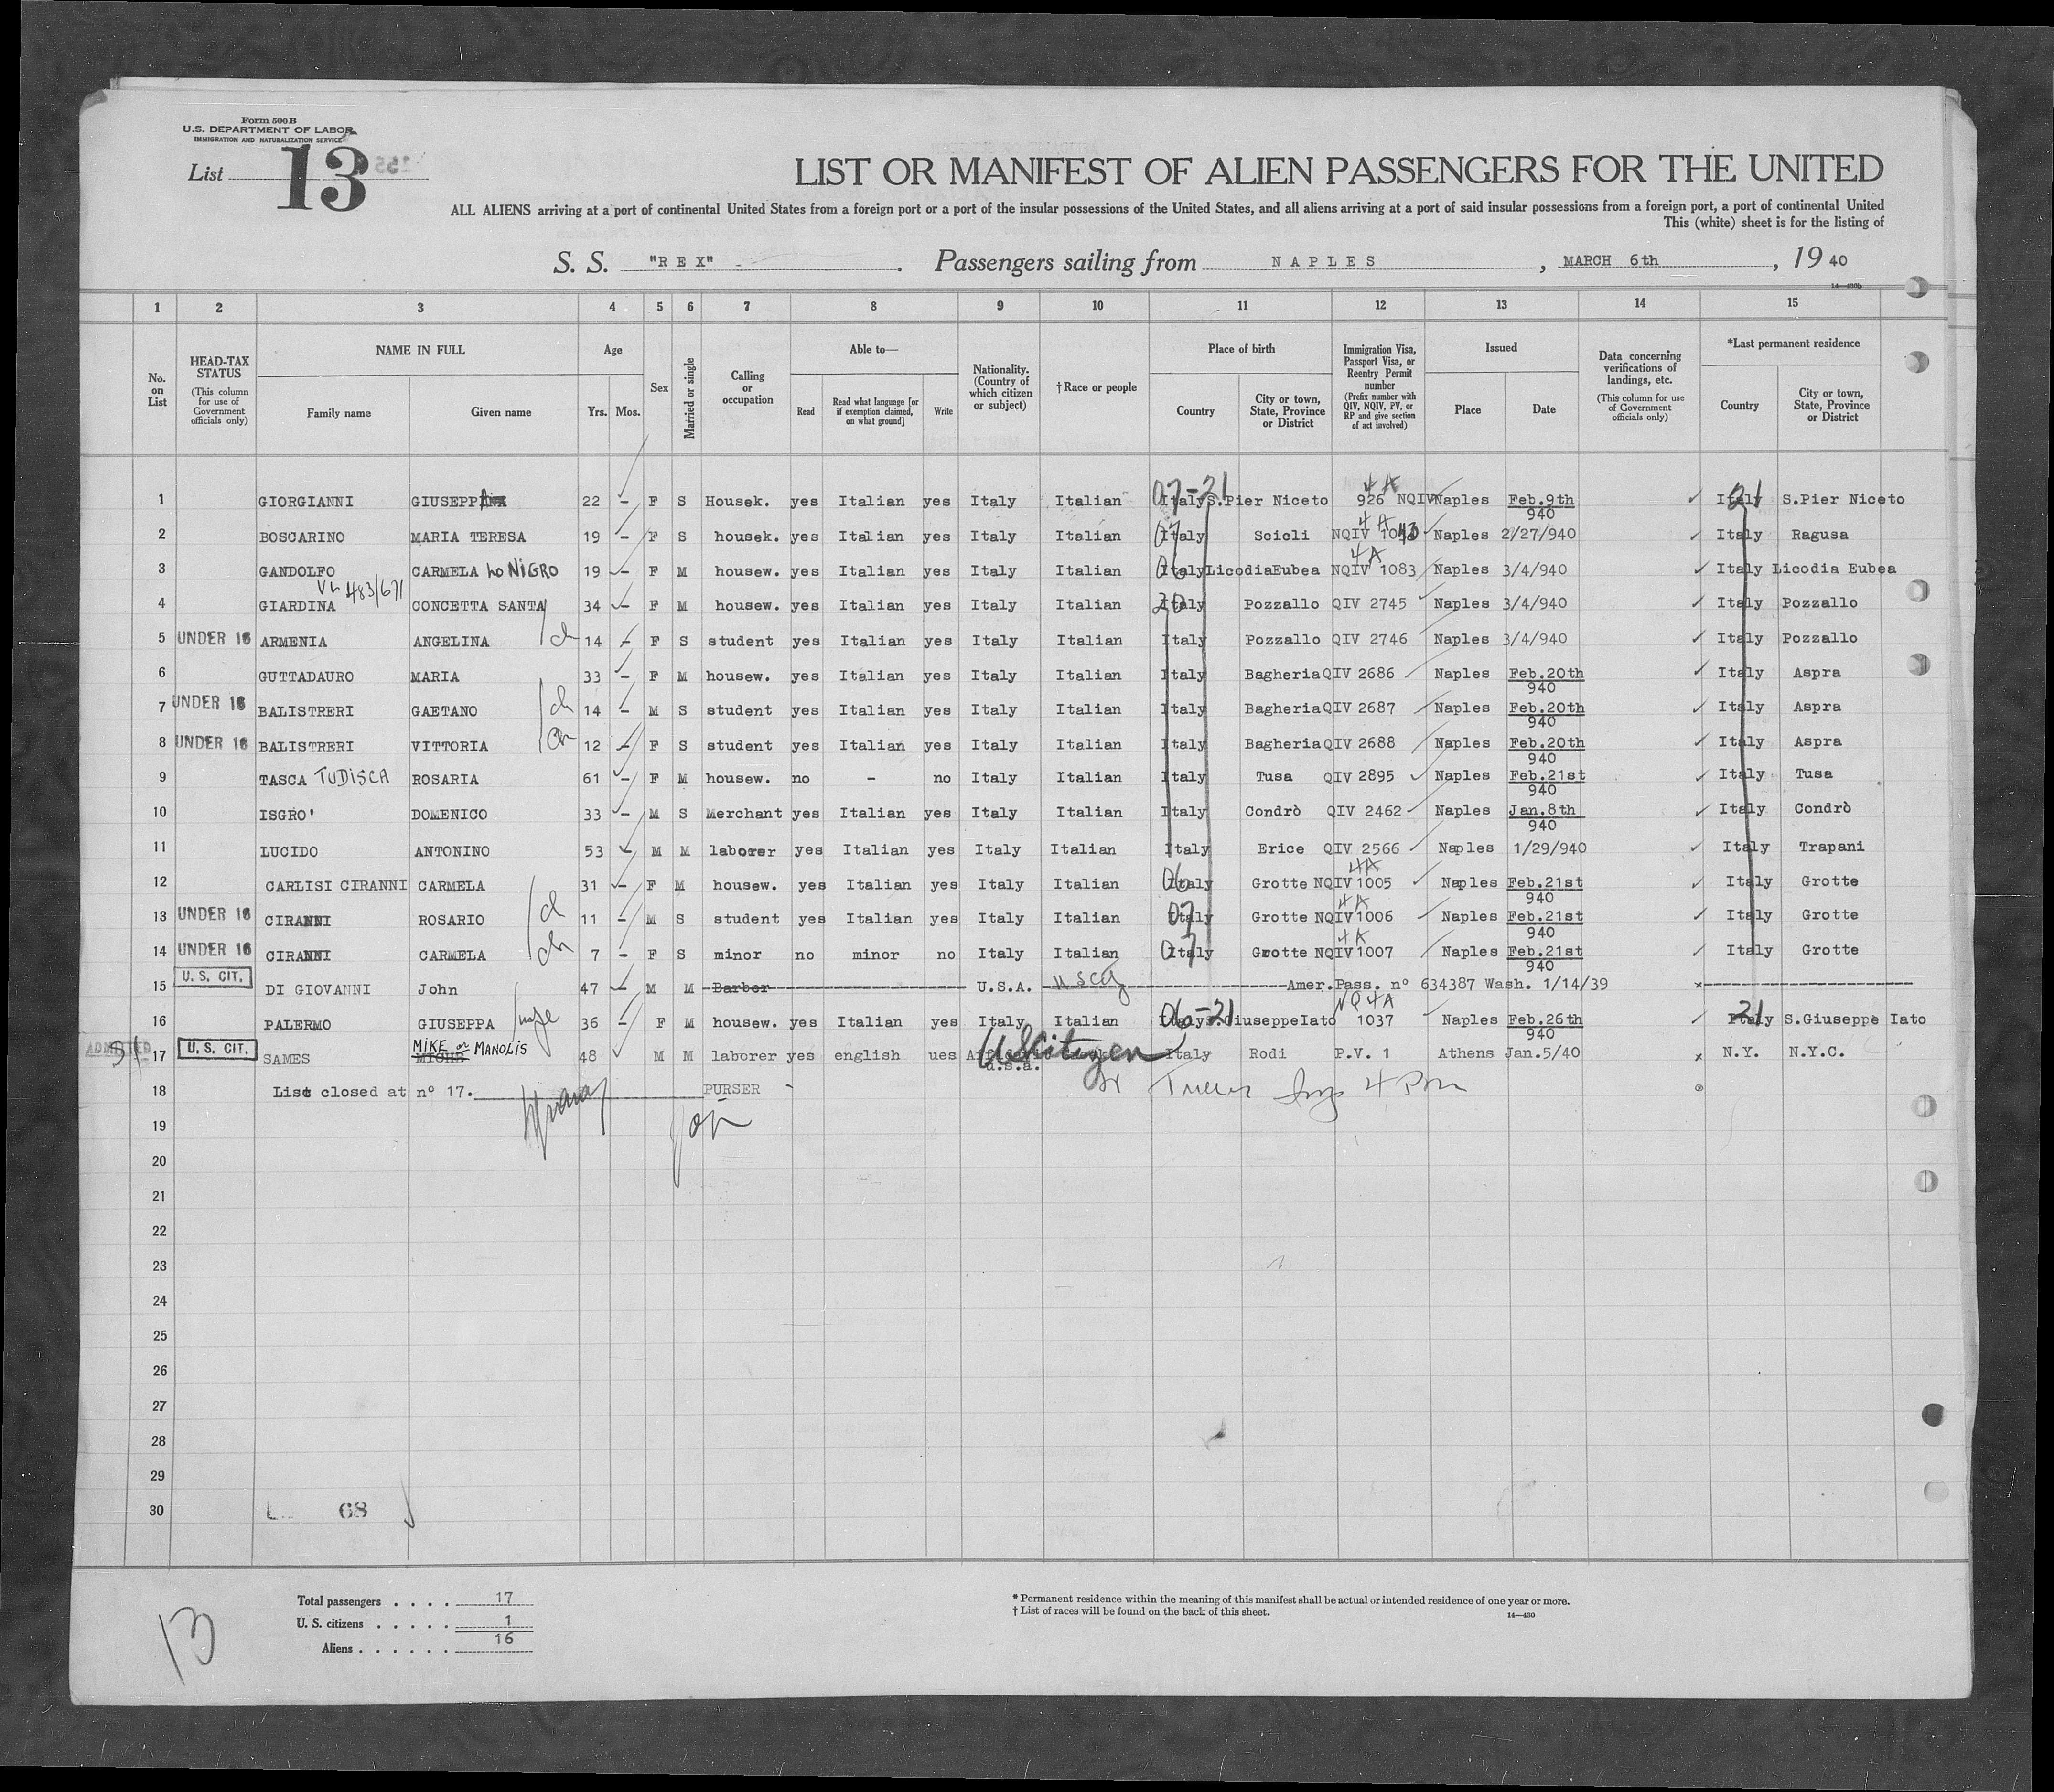 Form 500 B
U.S. DEPARTMENT OF LABOR
IMMIGRATION AND NATURALIZATION SERVICE
List 13
LIST OR MANIFEST OF ALIEN PASSENGERS FOR THE UNITED
ALL ALIENS arriving at a port of continental United States from a foreign port or a port of the insular possessions of the United States, and all aliens arriving at a port of said insular possessions from a foreign port, a port of continental United
This (white) sheet is for the listing of
S. S. "REX" . Passengers sailing from NAPLES , MARCH 6th , 19 40
14—430b
1 2 3 4 5 6 7 8 9 10 11 12 13 14 15
No. on List
HEAD-TAX STATUS (This column for use of Government officials only)
NAME IN FULL Family name Given name
Age Yrs. Mos.
Sex
Married or single
Calling or occupation
Able to— Read Read what language [or if exemption claimed, on what ground] Write
Nationality. (Country of which citizen or subject)
† Race or people
Place of birth Country City or town, State, Province or District
Immigration Visa, Passport Visa, or Reentry Permit number (Prefix number with QIV, NQIV, PV, or RP and give section of act involved)
Issued Place Date
Data concerning verifications of landings, etc. (This column for use of Government officials only)
*Last permanent residence Country City or town, State, Province or District
1 GIORGIANNI GIUSEPPA 22 - F S Housek. yes Italian yes Italy Italian 07-21 Italy S.Pier Niceto 4A 926 NQIV Naples Feb.9th 940 Italy 21 S.Pier Niceto
2 BOSCARINO MARIA TERESA 19 - F S housek. yes Italian yes Italy Italian 07 Italy Scicli 4A NQIV 1043 Naples 2/27/940 Italy Ragusa
3 GANDOLFO CARMELA Lo NIGRO 19 - F M housew. yes Italian yes Italy Italian 06 Italy LicodiaEubea 4A NQIV 1083 Naples 3/4/940 Italy Licodia Eubea
VL 483/671
4 GIARDINA CONCETTA SANTA 34 - F M housew. yes Italian yes Italy Italian 20 Italy Pozzallo QIV 2745 Naples 3/4/940 Italy Pozzallo
5 UNDER 16 ARMENIA ANGELINA ch 14 - F S student yes Italian yes Italy Italian Italy Pozzallo QIV 2746 Naples 3/4/940 Italy Pozzallo
6 GUTTADAURO MARIA 33 - F M housew. yes Italian yes Italy Italian Italy Bagheria QIV 2686 Naples Feb.20th 940 Italy Aspra
7 UNDER 16 BALISTRERI GAETANO ch 14 - M S student yes Italian yes Italy Italian Italy Bagheria QIV 2687 Naples Feb.20th 940 Italy Aspra
8 UNDER 16 BALISTRERI VITTORIA ch 12 - F S student yes Italian yes Italy Italian Italy Bagheria QIV 2688 Naples Feb.20th 940 Italy Aspra
9 TASCA TUDISCA ROSARIA 61 - F M housew. no - no Italy Italian Italy Tusa QIV 2895 Naples Feb.21st 940 Italy Tusa
10 ISGRO' DOMENICO 33 - M S Merchant yes Italian yes Italy Italian Italy Condrò QIV 2462 Naples Jan.8th 940 Italy Condrò
11 LUCIDO ANTONINO 53 - M M laborer yes Italian yes Italy Italian Italy Erice QIV 2566 Naples 1/29/940 Italy Trapani
12 CARLISI CIRANNI CARMELA 31 - F M housew. yes Italian yes Italy Italian 06 Italy Grotte 4A NQIV 1005 Naples Feb.21st 940 Italy Grotte
13 UNDER 16 CIRANNI ROSARIO ch 11 - M S student yes Italian yes Italy Italian 07 Italy Grotte 4A NQIV 1006 Naples Feb.21st 940 Italy Grotte
14 UNDER 16 CIRANNI CARMELA ch 7 - F S minor no minor no Italy Italian 07 Italy Grotte 4A NQIV 1007 Naples Feb.21st 940 Italy Grotte
15 U. S. CIT. DI GIOVANNI John 47 - M M Barber U.S.A. Amer.Pass. n° 634387 Wash. 1/14/39 x
16 PALERMO GIUSEPPA wife 36 - F M housew. yes Italian yes Italy Italian 06-21 Italy S.GiuseppeIato NQ4A 1037 Naples Feb.26th 940 Italy 21 S.Giuseppe Iato
ADMITTED 17 U. S. CIT. SAMES MIKE or MANOLIS 48 M M laborer yes english ues U.S.A. US Citizen Italy Rodi P.V. 1 Athens Jan.5/40 x N.Y. N.Y.C.
18 List closed at n° 17. PURSER
19
20
21
22
23
24
25
26
27
28
29
30 68
Total passengers . . . . 17
U. S. citizens . . . . . 1
Aliens . . . . . . 16
13
* Permanent residence within the meaning of this manifest shall be actual or intended residence of one year or more.
† List of races will be found on the back of this sheet. 14—430